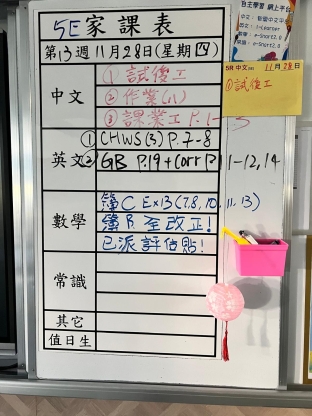 5E 家課表
第13週11月28日(星期四)
中文
① 試後工
② 作業(八)
③ 課業工 P.1-5
英文
① CHWS(3) P.7-8
② GB P.19 + Corr P.11-12,14
數學
簿C Ex13(7,8,10,11,13)
簿B 全改立!
已派評估貼!
常識
其它
值日生
自主學習 網上平台
5A 中文 11月28日
①試後工